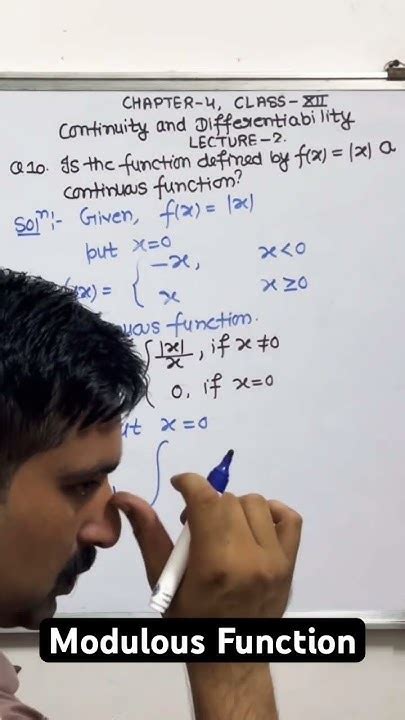 CHAPTER-4, CLASS-XII
Continuity and Differentiability
LECTURE-2.
Q10. Is the function defined by f(x) = |x| a
continuous function?
Solⁿ:- Given, f(x) = |x|
put x=0
(x) = { -x, x<0
x x≥0
function.
{ |x|/x, if x≠0
0, if x=0
at x=0
Modulous Function